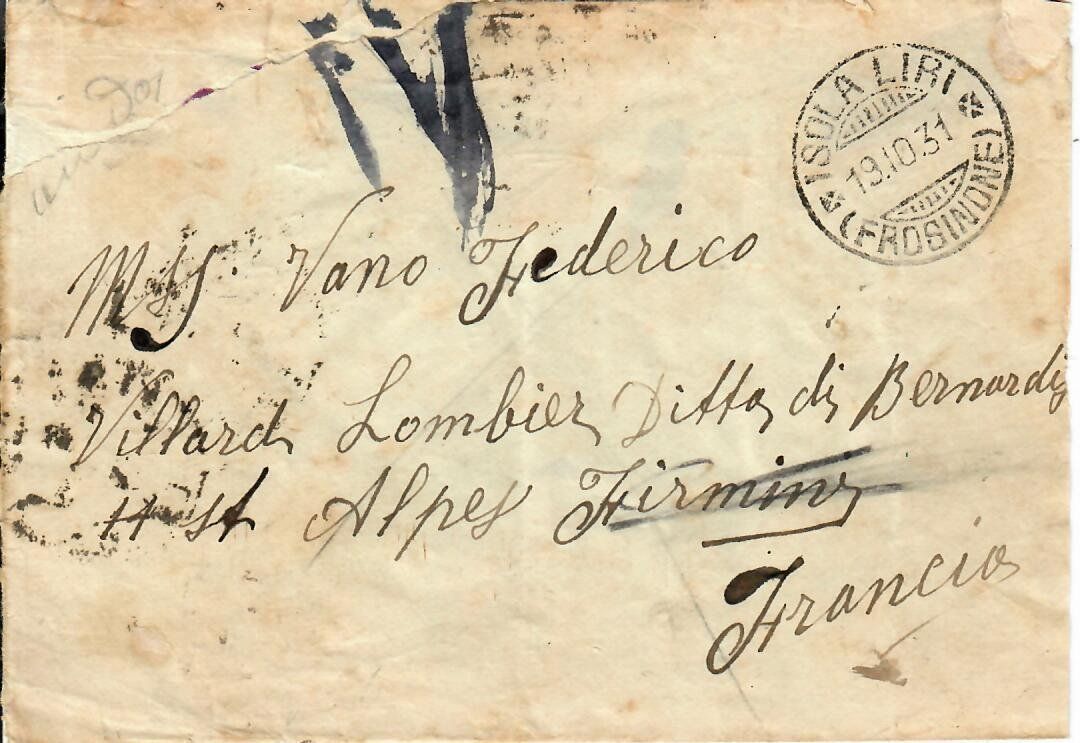 ISOLA LIRI
19.10.31
(FROSINONE)
Vano Federico
Villard Lombier Ditta di Bernardi
H St Alpes Firmin
Francia